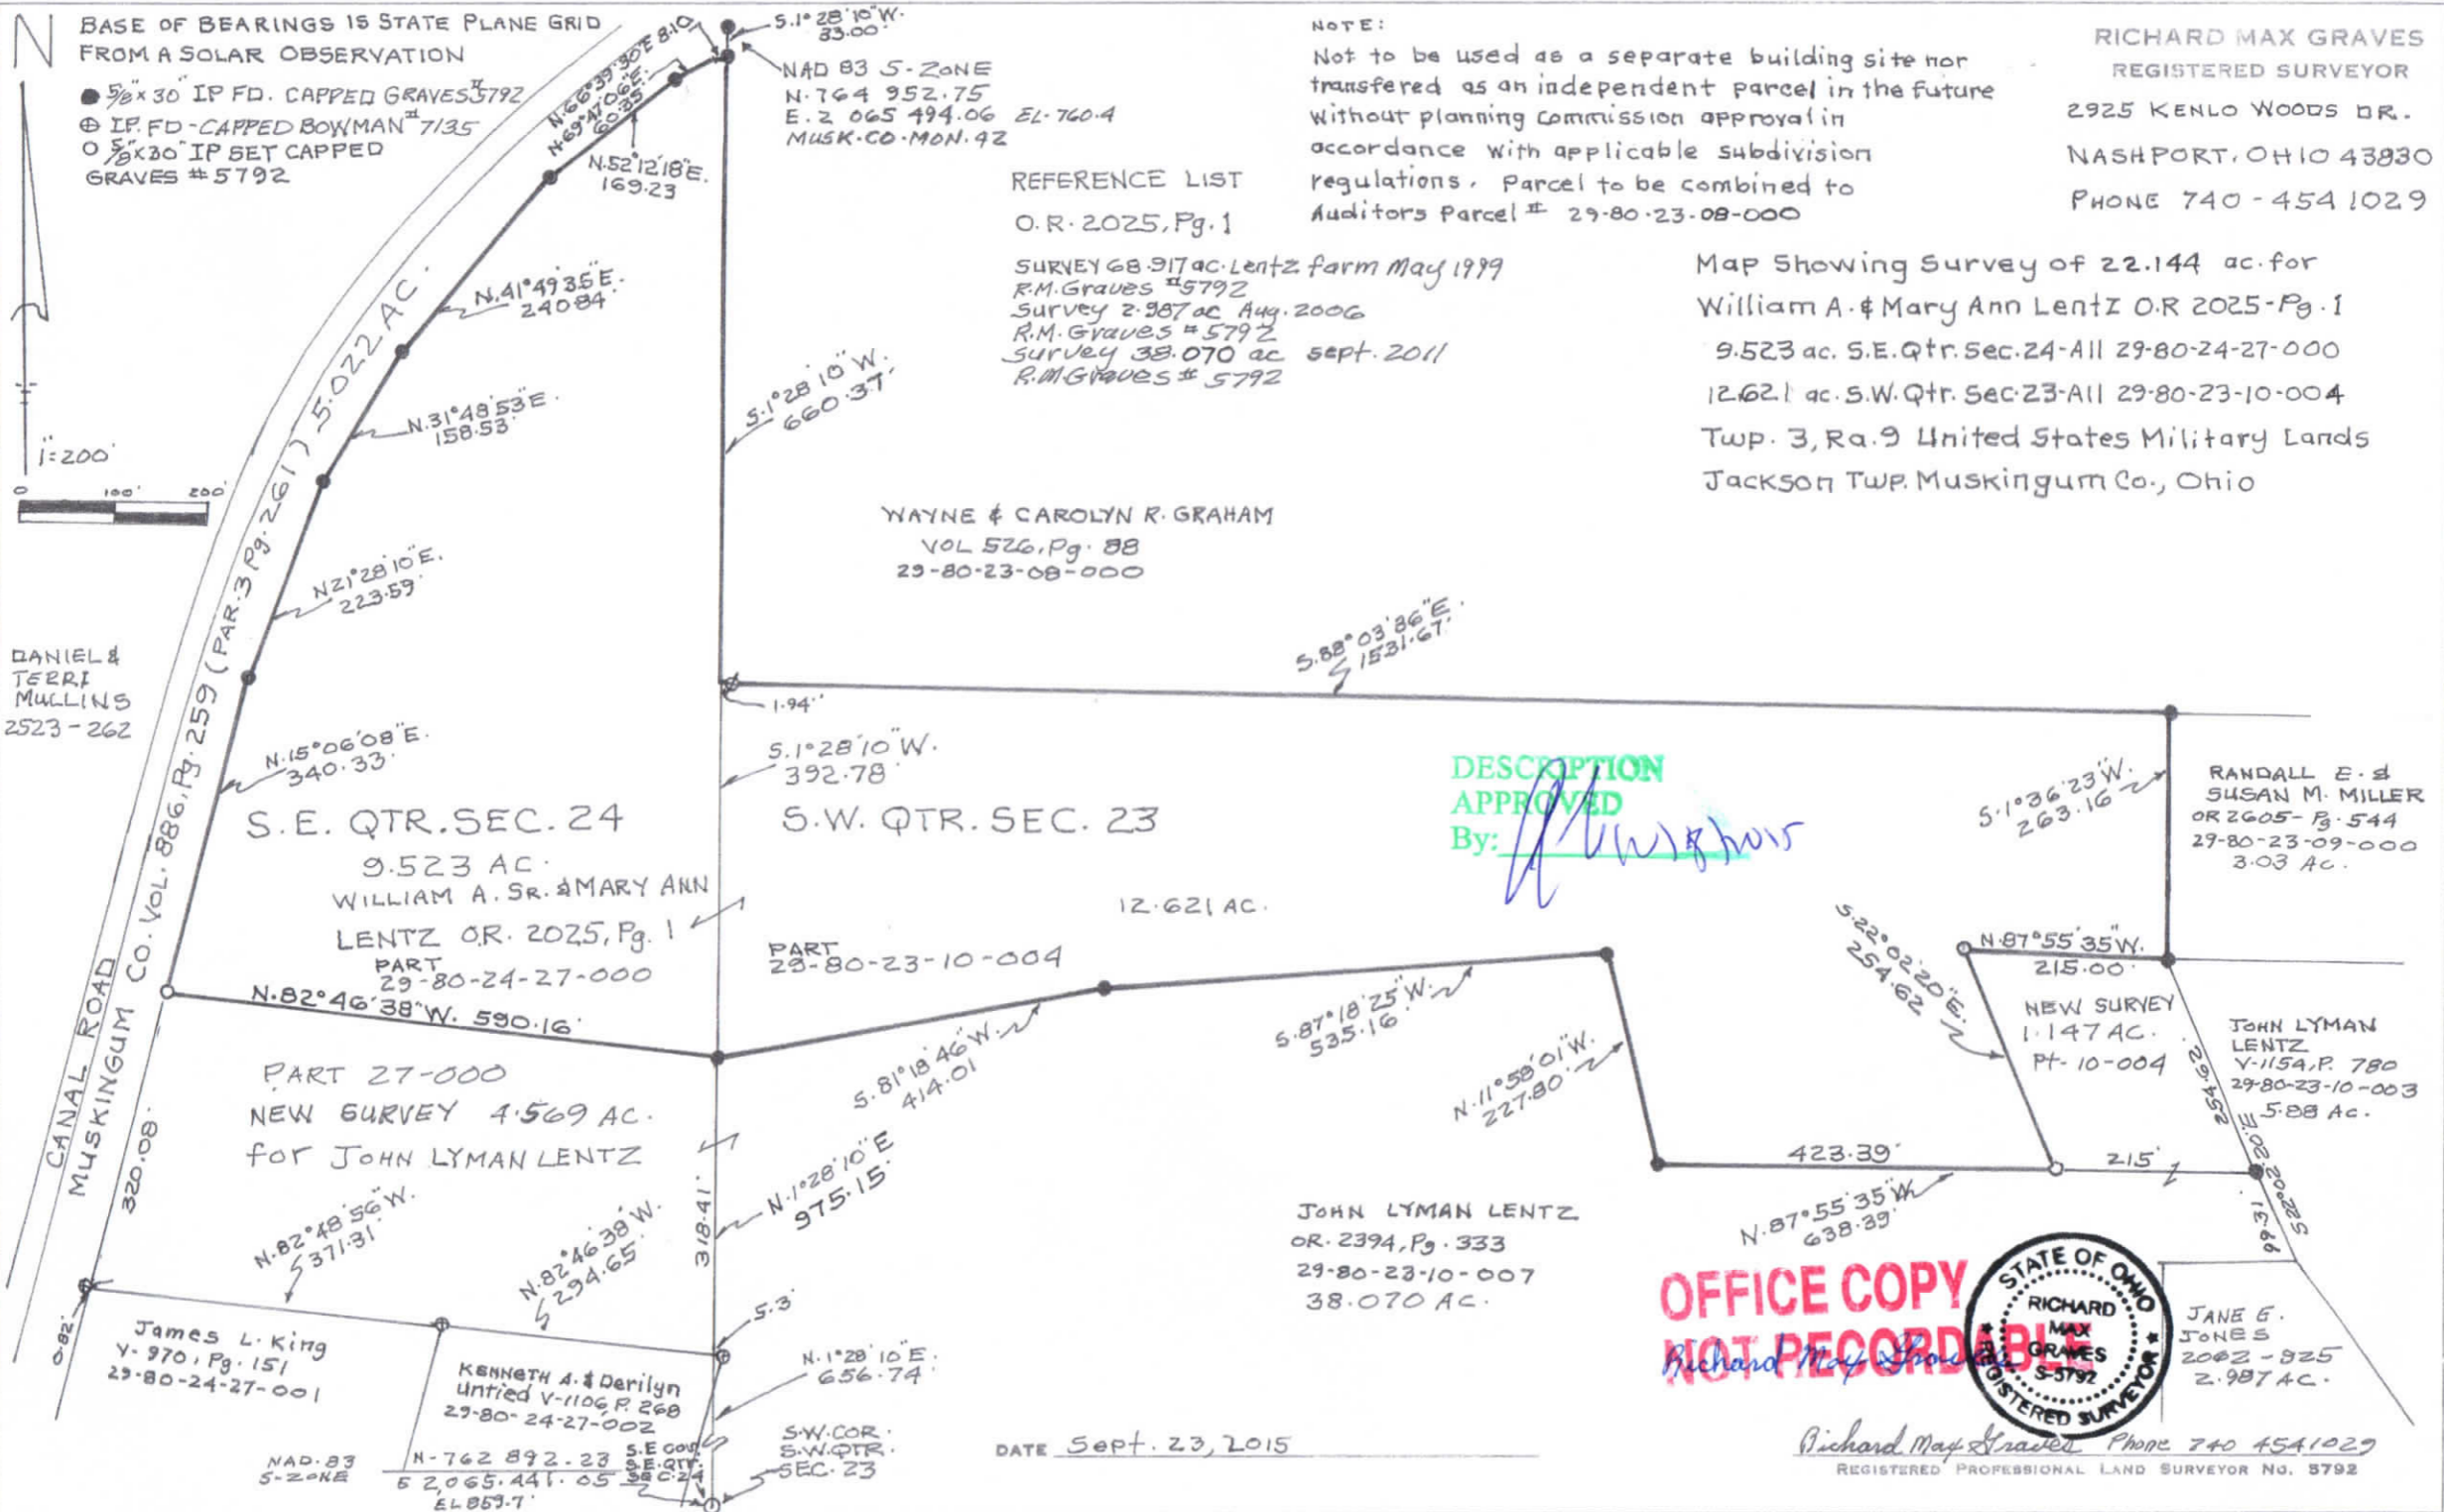 N
BASE OF BEARINGS IS STATE PLANE GRID
FROM A SOLAR OBSERVATION
5/8"x30" IP FD. CAPPED GRAVES #5792
I.P. FD-CAPPED BOWMAN #7135
5/8"x30" IP SET CAPPED
GRAVES #5792
1"=200'
0 100' 200'
S.1°28'10"W.
33.00'
NAD 83 S-ZONE
N-764 952.75
E.2 065 494.06 EL-760.4
MUSK-CO-MON.42
N.66°39'30"E 8.10
N.69°47'06"E.
60.35'
N.52°12'18"E.
169.23
N.41°49'35"E.
240.84
N.31°48'53"E.
158.53'
N21°28'10"E.
223.59'
N.15°06'08"E.
340.33'
NOTE:
Not to be used as a separate building site nor
transfered as an independent parcel in the future
without planning commission approval in
accordance with applicable subdivision
regulations. Parcel to be combined to
Auditors Parcel # 29-80-23-08-000
RICHARD MAX GRAVES
REGISTERED SURVEYOR
2925 KENLO WOODS DR.
NASHPORT, OHIO 43830
PHONE 740-454 1029
REFERENCE LIST
O.R. 2025, Pg. 1
SURVEY 68.917 ac. Lentz farm May 1999
R.M. Graves #5792
Survey 2.987 ac Aug. 2006
R.M. Graves #5792
Survey 38.070 ac sept. 2011
R.M Graves # 5792
Map Showing Survey of 22.144 ac. for
William A. & Mary Ann Lentz O.R 2025-Pg. 1
9.523 ac. S.E. Qtr. Sec. 24-All 29-80-24-27-000
12.621 ac. S.W. Qtr. Sec. 23-All 29-80-23-10-004
Twp. 3, Ra. 9 United States Military Lands
Jackson Twp. Muskingum Co., Ohio
S.1°28'10"W.
660.37'
WAYNE & CAROLYN R. GRAHAM
VOL 526, Pg. 88
29-80-23-08-000
S.88°03'86"E.
1531.67'
DANIEL &
TERRI
MULLINS
2523-262
CANAL ROAD
MUSKINGUM CO. VOL. 886, Pg. 259 (PAR. 3 Pg. 261) 5.022 AC.
1.94'
S.1°28'10"W.
392.78'
S.E. QTR. SEC. 24
9.523 AC.
WILLIAM A. SR. & MARY ANN
LENTZ O.R. 2025, Pg. 1
PART
29-80-24-27-000
S.W. QTR. SEC. 23
12.621 AC.
PART
29-80-23-10-004
DESCRIPTION
APPROVED
By:
S.1°36'23"W.
263.16
RANDALL E. &
SUSAN M. MILLER
OR 2605-Pg. 544
29-80-23-09-000
3.03 AC.
N.87°55'35"W.
215.00'
S.22°02'20"E.
254.62
NEW SURVEY
1.147 AC.
Pt-10-004
254.62
S22°02'20"E
JOHN LYMAN
LENTZ
V-1154, P. 780
29-80-23-10-003
5.88 AC.
N.82°46'38"W. 590.16'
S.81°18'46"W.
414.01
S.87°18'25"W.
535.16'
N.11°58'01"W.
227.80'
423.39'
215'
N.87°55'35"W.
638.39'
99.31'
PART 27-000
NEW SURVEY 4.569 AC.
for JOHN LYMAN LENTZ
320.08'
N.82°48'56"W.
371.31'
N.82°46'38"W.
294.65'
318.41'
N.1°28'10"E
975.15'
JOHN LYMAN LENTZ
OR. 2394, Pg. 333
29-80-23-10-007
38.070 AC.
0.82'
5.3'
James L. King
V-970, Pg. 151
29-80-24-27-001
KENNETH A. & Derilyn
Untied V-1106, P. 268
29-80-24-27-002
N.1°28'10"E.
656.74'
S.W. COR.
S.W. QTR.
SEC. 23
NAD-83
S-ZONE
N-762 892.23
E 2,065.441.05
EL 859.7'
S.E COR
S.E. QTR.
SEC. 24
OFFICE COPY
NOT RECORDABLE
Richard Max Graves
STATE OF OHIO
RICHARD
MAX
GRAVES
S-5792
REGISTERED SURVEYOR
JANE E.
JONES
2002-925
2.987 AC.
DATE Sept. 23, 2015
Richard Max Graves Phone 740 4541029
REGISTERED PROFESSIONAL LAND SURVEYOR No. 5792